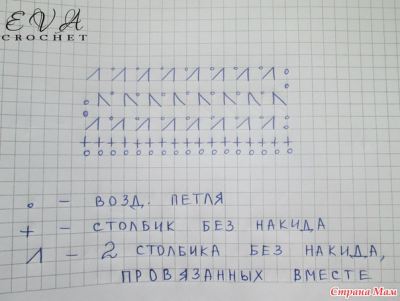 EVA
CROCHET
o – ВОЗД. ПЕТЛЯ
+ – СТОЛБИК БЕЗ НАКИДА
Λ – 2 СТОЛБИКА БЕЗ НАКИДА,
ПРОВЯЗАННЫХ ВМЕСТЕ
Страна Мам